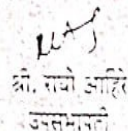 श्री. राघो आहिरे
उपसभापती